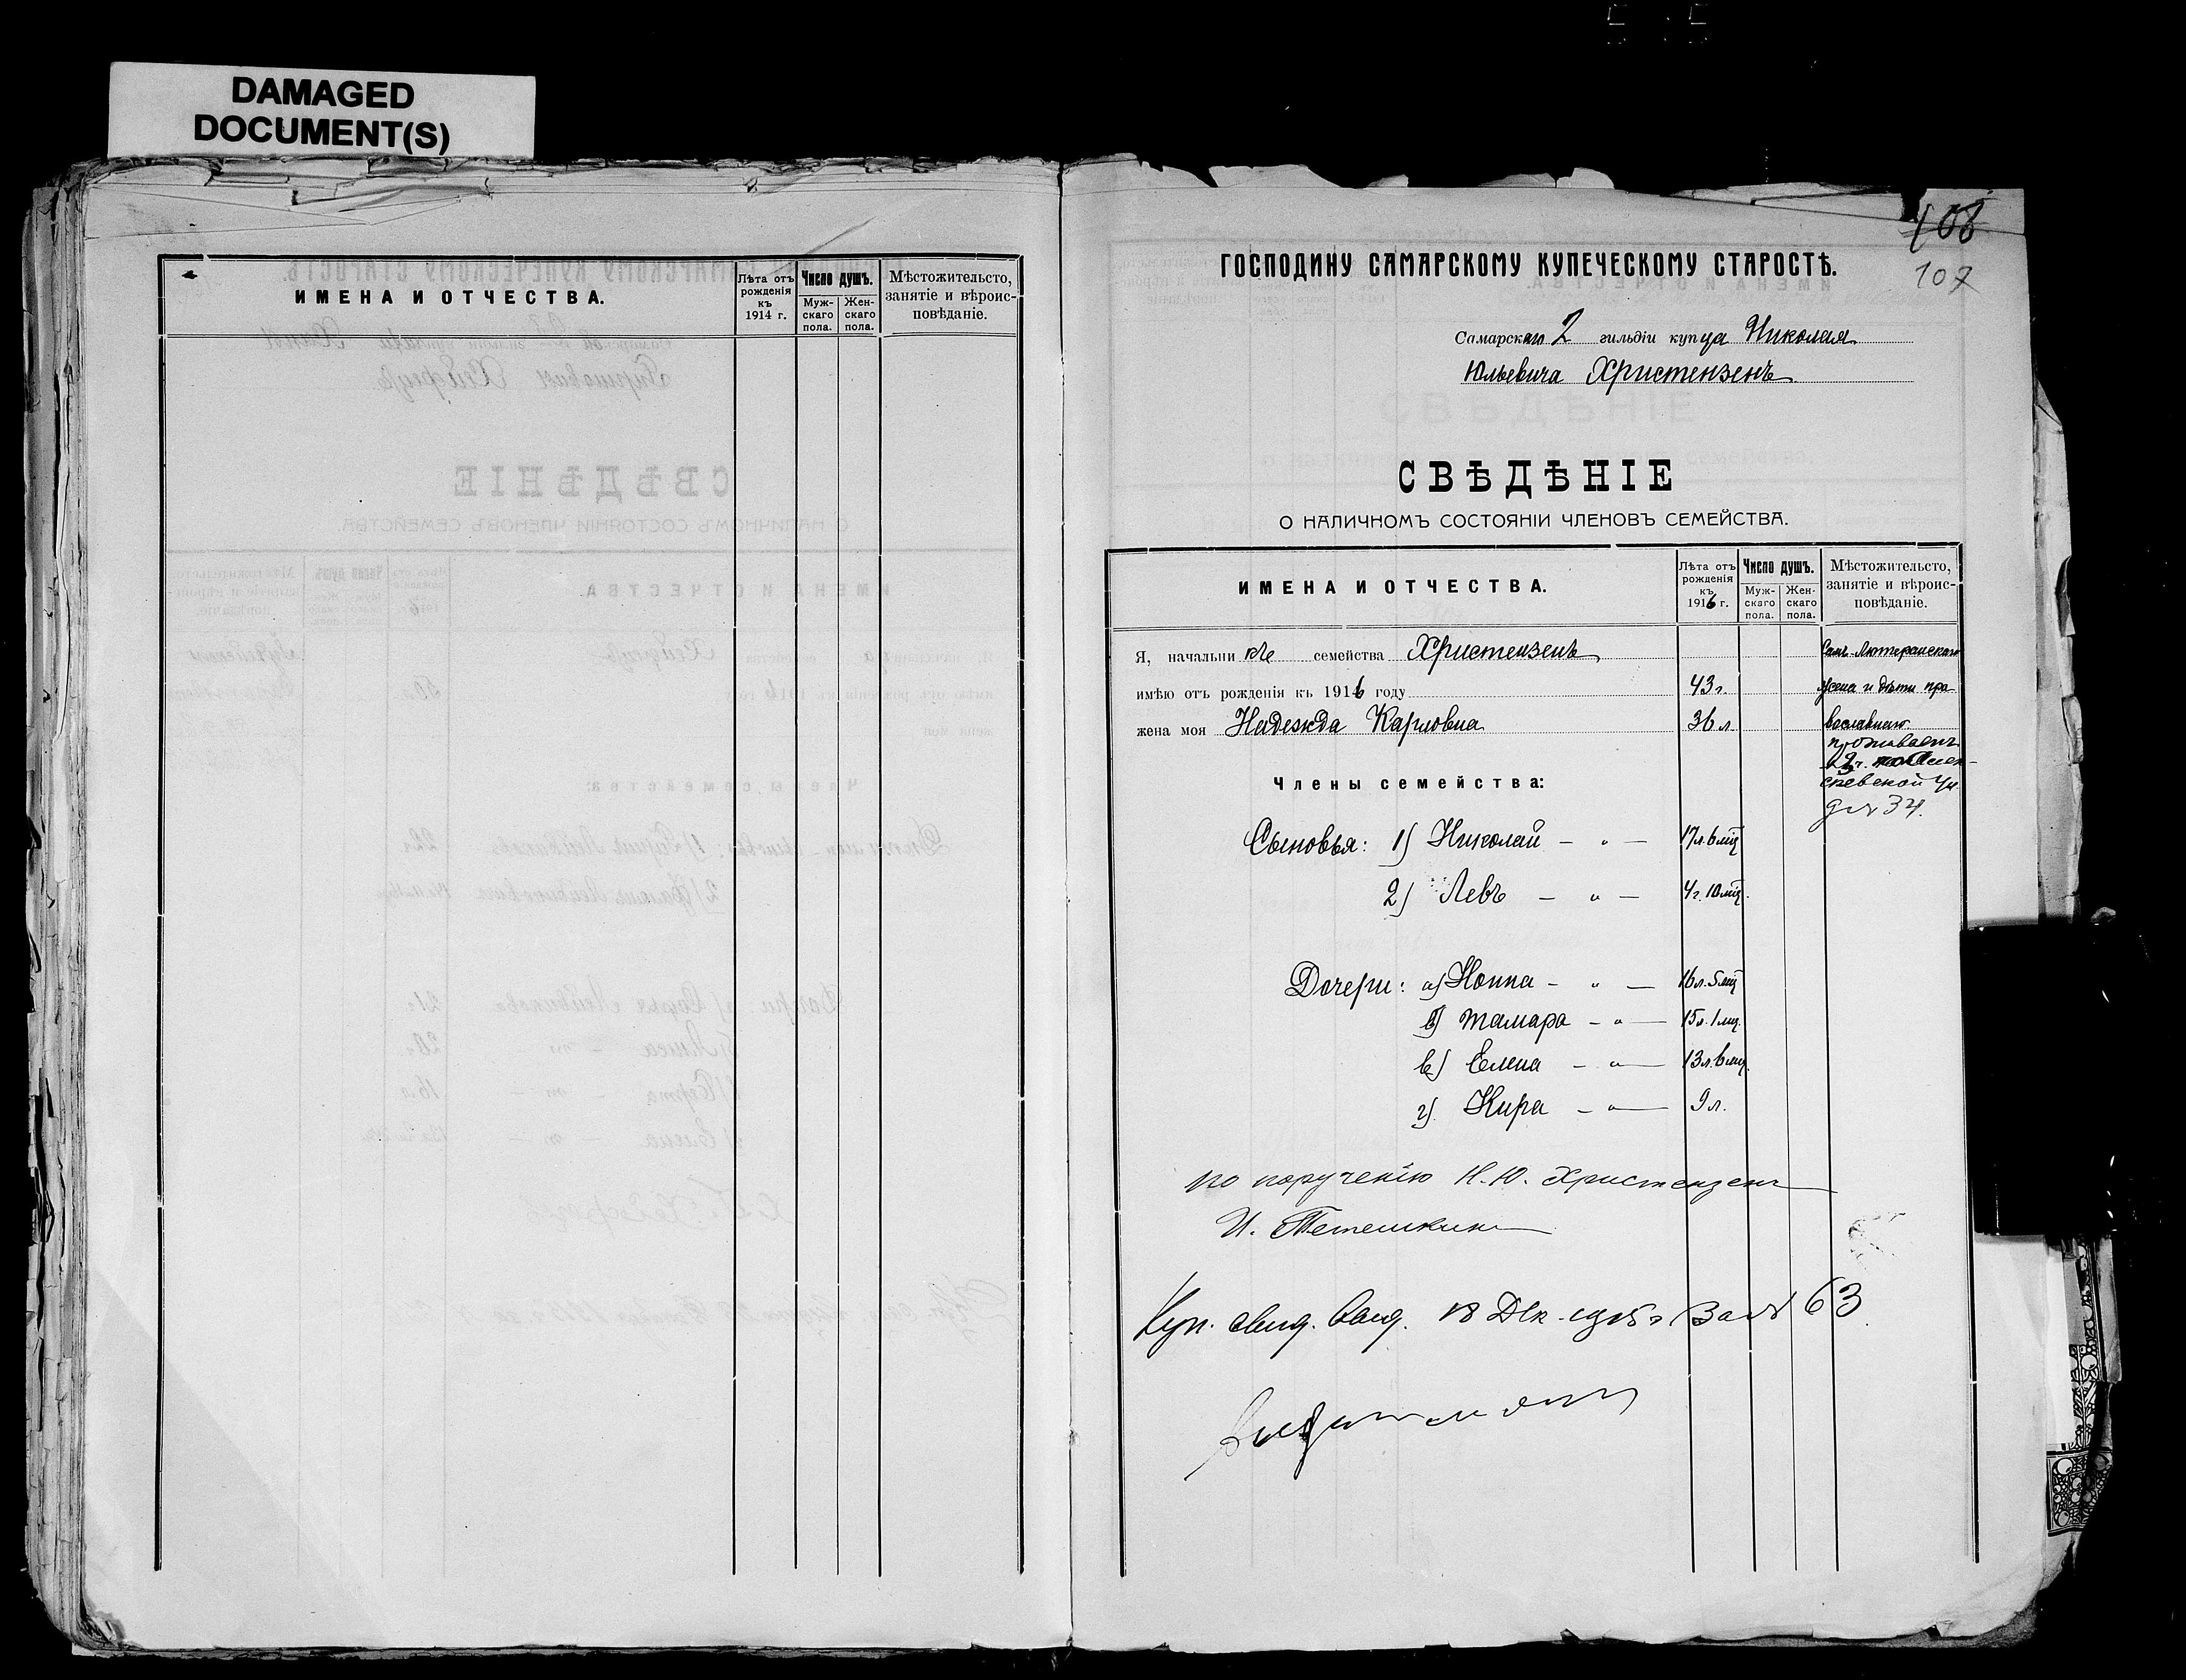 DAMAGED
DOCUMENT(S)
ИМЕНА И ОТЧЕСТВА.
Лѣта отъ
рожденія
къ
1914 г.
Число душъ.
Муж-
скаго
пола.
Жен-
скаго
пола.
Мѣстожительсто,
занятіе и вѣроис-
повѣданіе.
108
107
ГОСПОДИНУ САМАРСКОМУ КУПЕЧЕСКОМУ СТАРОСТѢ.
Самарскаго 2 гильдіи купца Николая
Юльевича Христензенъ
СВѢДѢНІЕ
О НАЛИЧНОМЪ СОСТОЯНІИ ЧЛЕНОВЪ СЕМЕЙСТВА.
ИМЕНА И ОТЧЕСТВА.
Лѣта отъ
рожденія
къ
1916 г.
Число душъ.
Муж-
скаго
пола.
Жен-
скаго
пола.
Мѣстожительсто,
занятіе и вѣроис-
повѣданіе.
Я, начальникъ семейства Христензенъ
Самъ-Лютеранскаго
имѣю отъ рожденія къ 1916 году 43 г.
жена и дѣти пра-
жена моя Надежда Карловна 36 л.
вославнаго
проживаетъ
Члены семейства:
сѣевской ул.
д № 34.
Сыновья: 1) Николай — " — 17 л. 6 мц
2) Левъ — " — 4 г. 10 мц.
Дочери: а) Нонна — " — 16 л. 5 мц
б) Тамара — " — 15 л. 1 мц.
в) Елена — " — 13 л. 6 мц.
г) Кира — " — 9 л.
по порученію Н. Ю. Христензенъ
И. Тетешкин
Куп. свид. выд. 18 Дек. 1915 г за № 63.